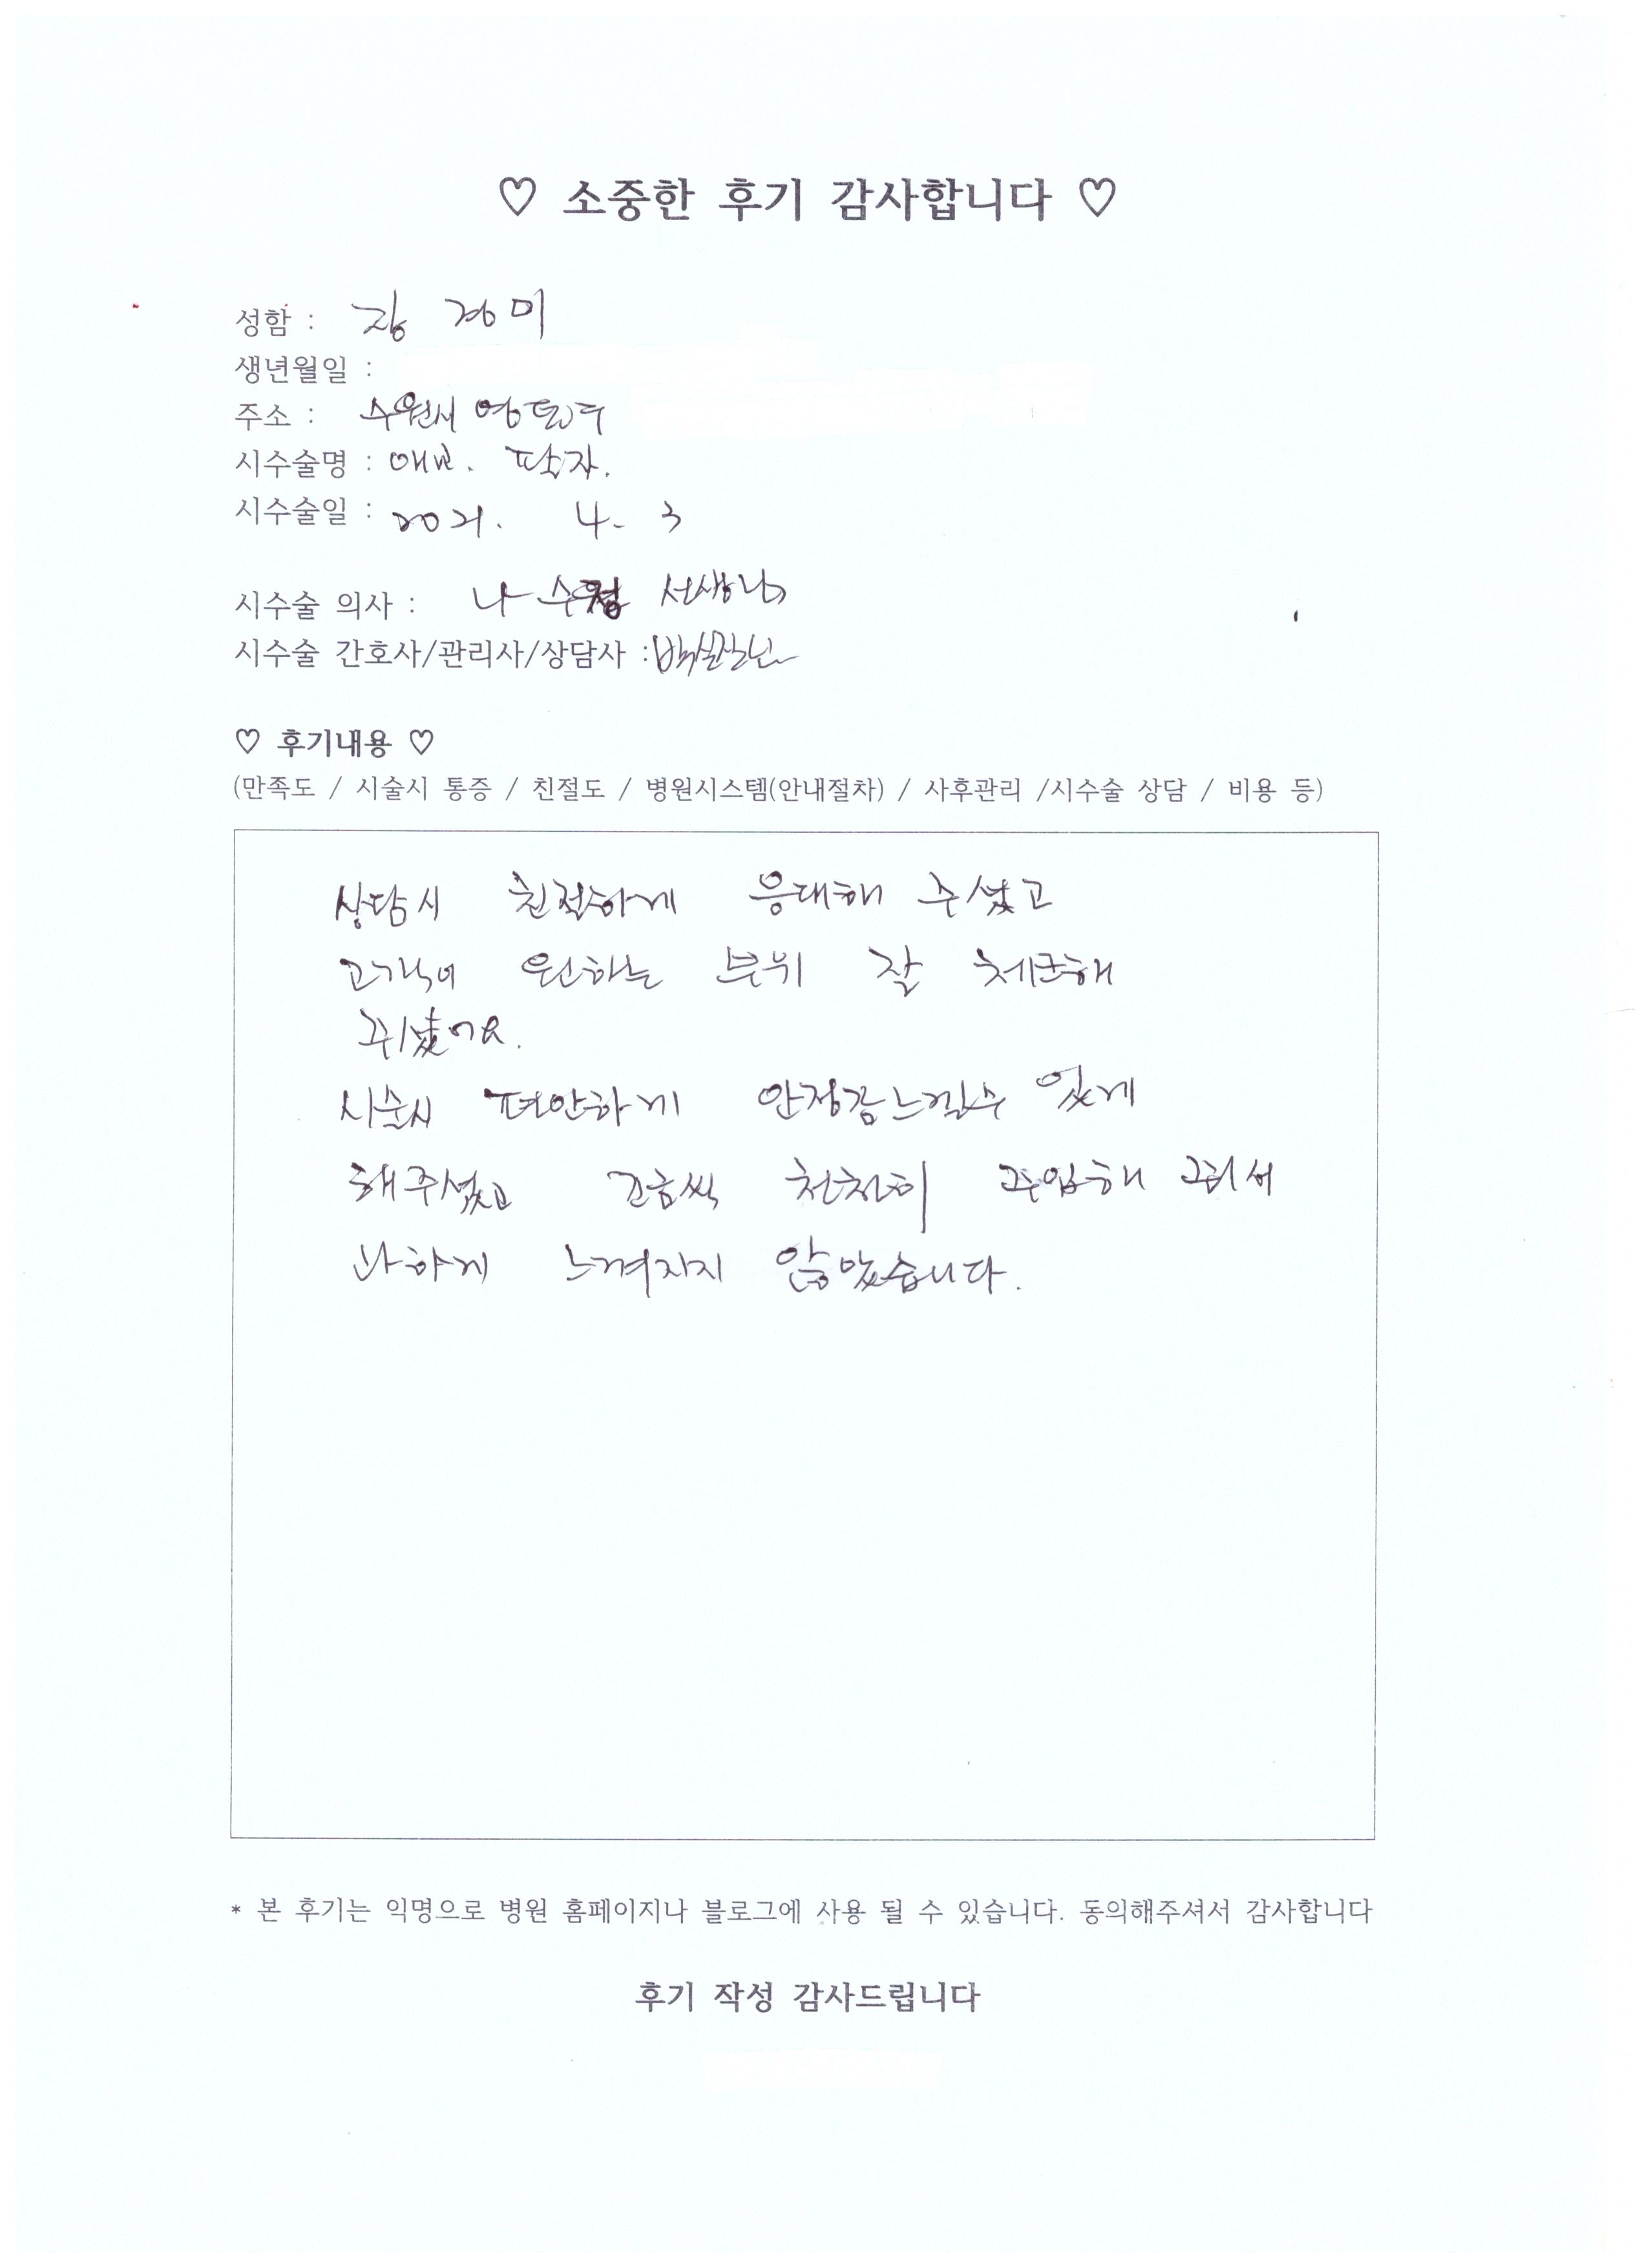 ♡ 소중한 후기 감사합니다 ♡
성함 : 장 경미
생년월일 :
주소 : 수원시 영통구
시수술명 : 애교. 팔자.
시수술일 : 2021. 4. 3
시수술 의사 : 나 수정 선생님
시수술 간호사/관리사/상담사 : 백실장님
♡ 후기내용 ♡
(만족도 / 시술시 통증 / 친절도 / 병원시스템(안내절차) / 사후관리 /시수술 상담 / 비용 등)
상담시 친절하게 응대해 주셨고
고객이 원하는 부위 잘 체크해
주셨어요.
시술시 편안하게 안정감느낄수 있게
해주셨고 조금씩 천천히 주입해
하게 느껴지지 않았습니다.
* 본 후기는 익명으로 병원 홈페이지나 블로그에 사용 될 수 있습니다. 동의해주셔서 감사합니다
후기 작성 감사드립니다